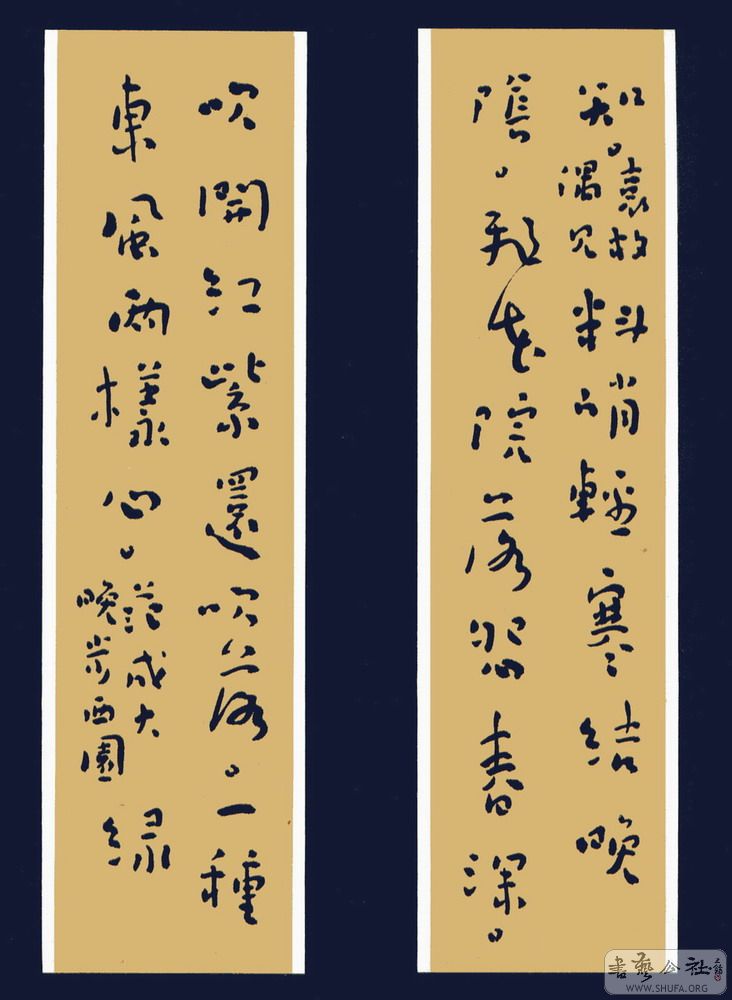 知。袁枚偶見料峭輕寒結晚
陰。飛花院落怨春深。
吹開紅紫還吹落。一種
東風兩樣心。范成大晚步西園緑
書藝公社
WWW.SHUFA.ORG